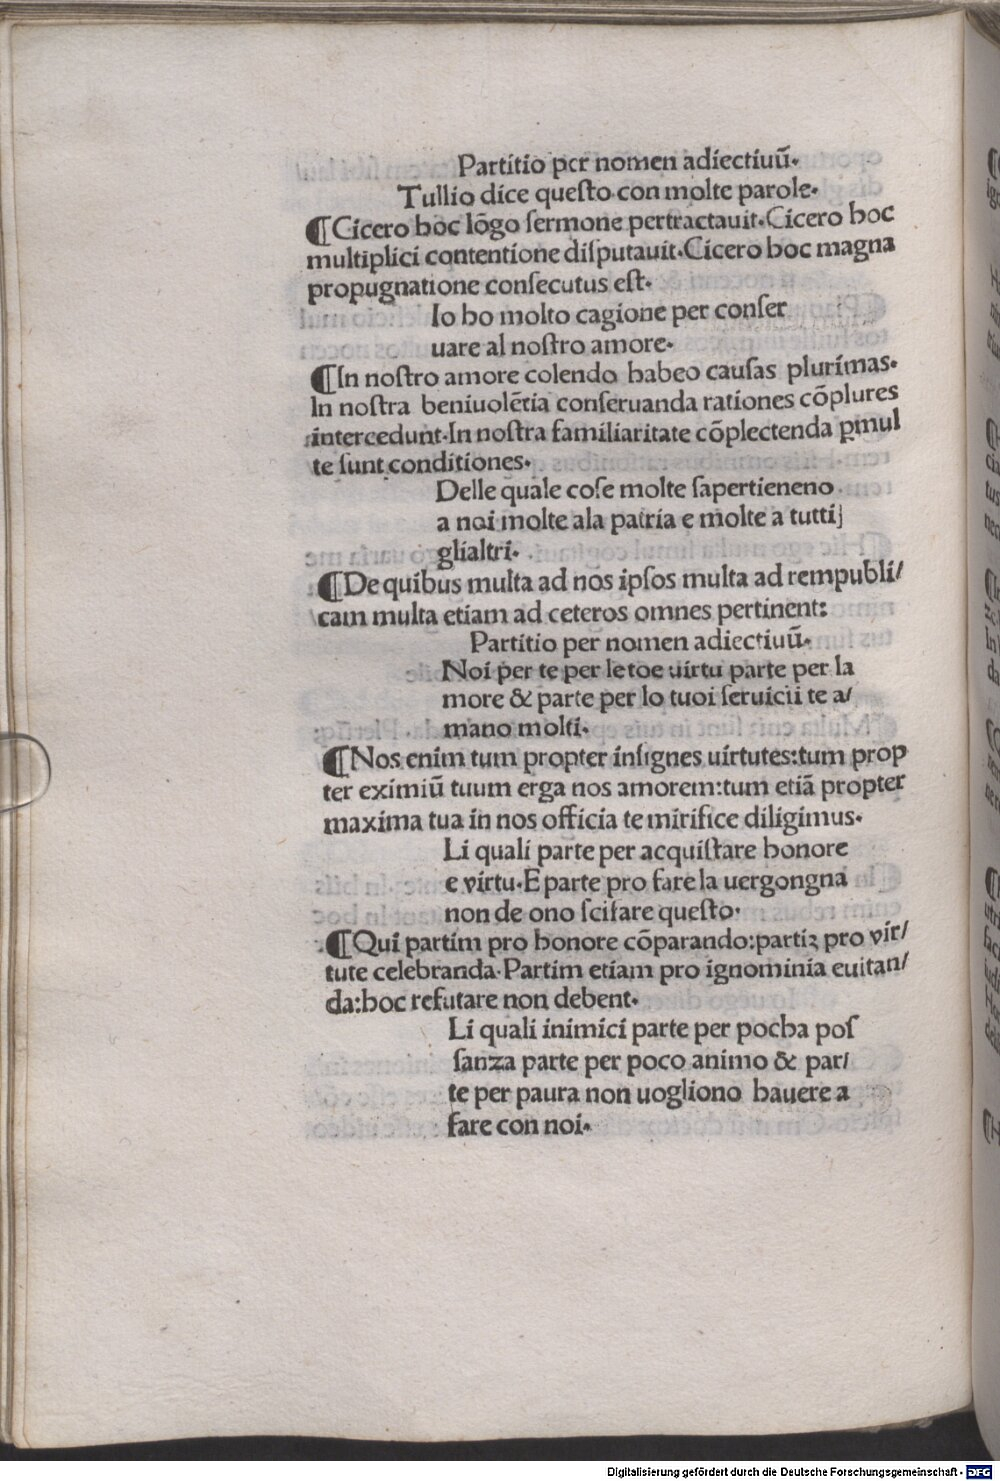 Partitio per nomen adiectiuū.
Tullio dice queſto con molte parole.
¶Cicero hoc lōgo ſermone pertractauit.Cicero hoc
multiplici contentione diſputauit.Cicero hoc magna
propugnatione conſecutus eſt.
Io ho molto cagione per conſer
uare al noſtro amore.
¶In noſtro amore colendo habeo cauſas plurimas.
In noſtra beniuolētia conſeruanda rationes cōplures
intercedunt.In noſtra familiaritate cōplectenda ꝑmul
te ſunt conditiones.
Delle quale coſe molte ſapertieneno
a noi molte ala patria e molte a tutti
glialtri.
¶De quibus multa ad nos ipſos multa ad rempubli/
cam multa etiam ad ceteros omnes pertinent:
Partitio per nomen adiectiuū.
Noi per te per le toe uirtu parte per la
more & parte per lo tuoi ſeruicii te a/
mano molti.
¶Nos enim tum propter inſignes uirtutes:tum prop
ter eximiū tuum erga nos amorem:tum etiā propter
maxima tua in nos officia te mirifice diligimus.
Li quali parte per acquiſtare honore
e virtu.E parte pro fare la uergongna
non de ono ſciſare queſto.
¶Qui partim pro honore cōparando:partiꝫ pro vir/
tute celebranda.Partim etiam pro ignominia euitan/
da:hoc refutare non debent.
Li quali inimici parte per pocha poſ
ſanza parte per poco animo & par/
te per paura non uogliono hauere a
fare con noi.
Digitalisierung gefördert durch die Deutsche Forschungsgemeinschaft - DFG